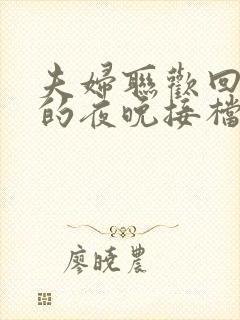 夫婦聯歡回
的夜晚接檔
廖曉農